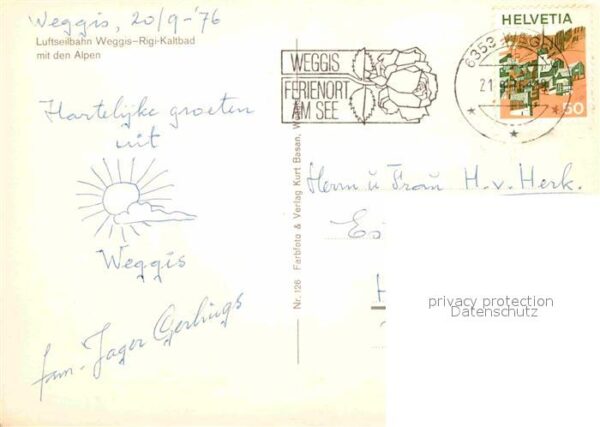 Weggis, 20/9-'76
Luftseilbahn Weggis–Rigi-Kaltbad
mit den Alpen
Hartelijke groeten
uit
Weggis
fam. Jager Gerlings
Nr. 126 Farbfoto & Verlag Kurt Basan, W
WEGGIS
FERIENORT
AM SEE
6353 WEGGIS
21
HELVETIA
50
Herrn u Frau H. v. Herk.
privacy protection
Datenschutz